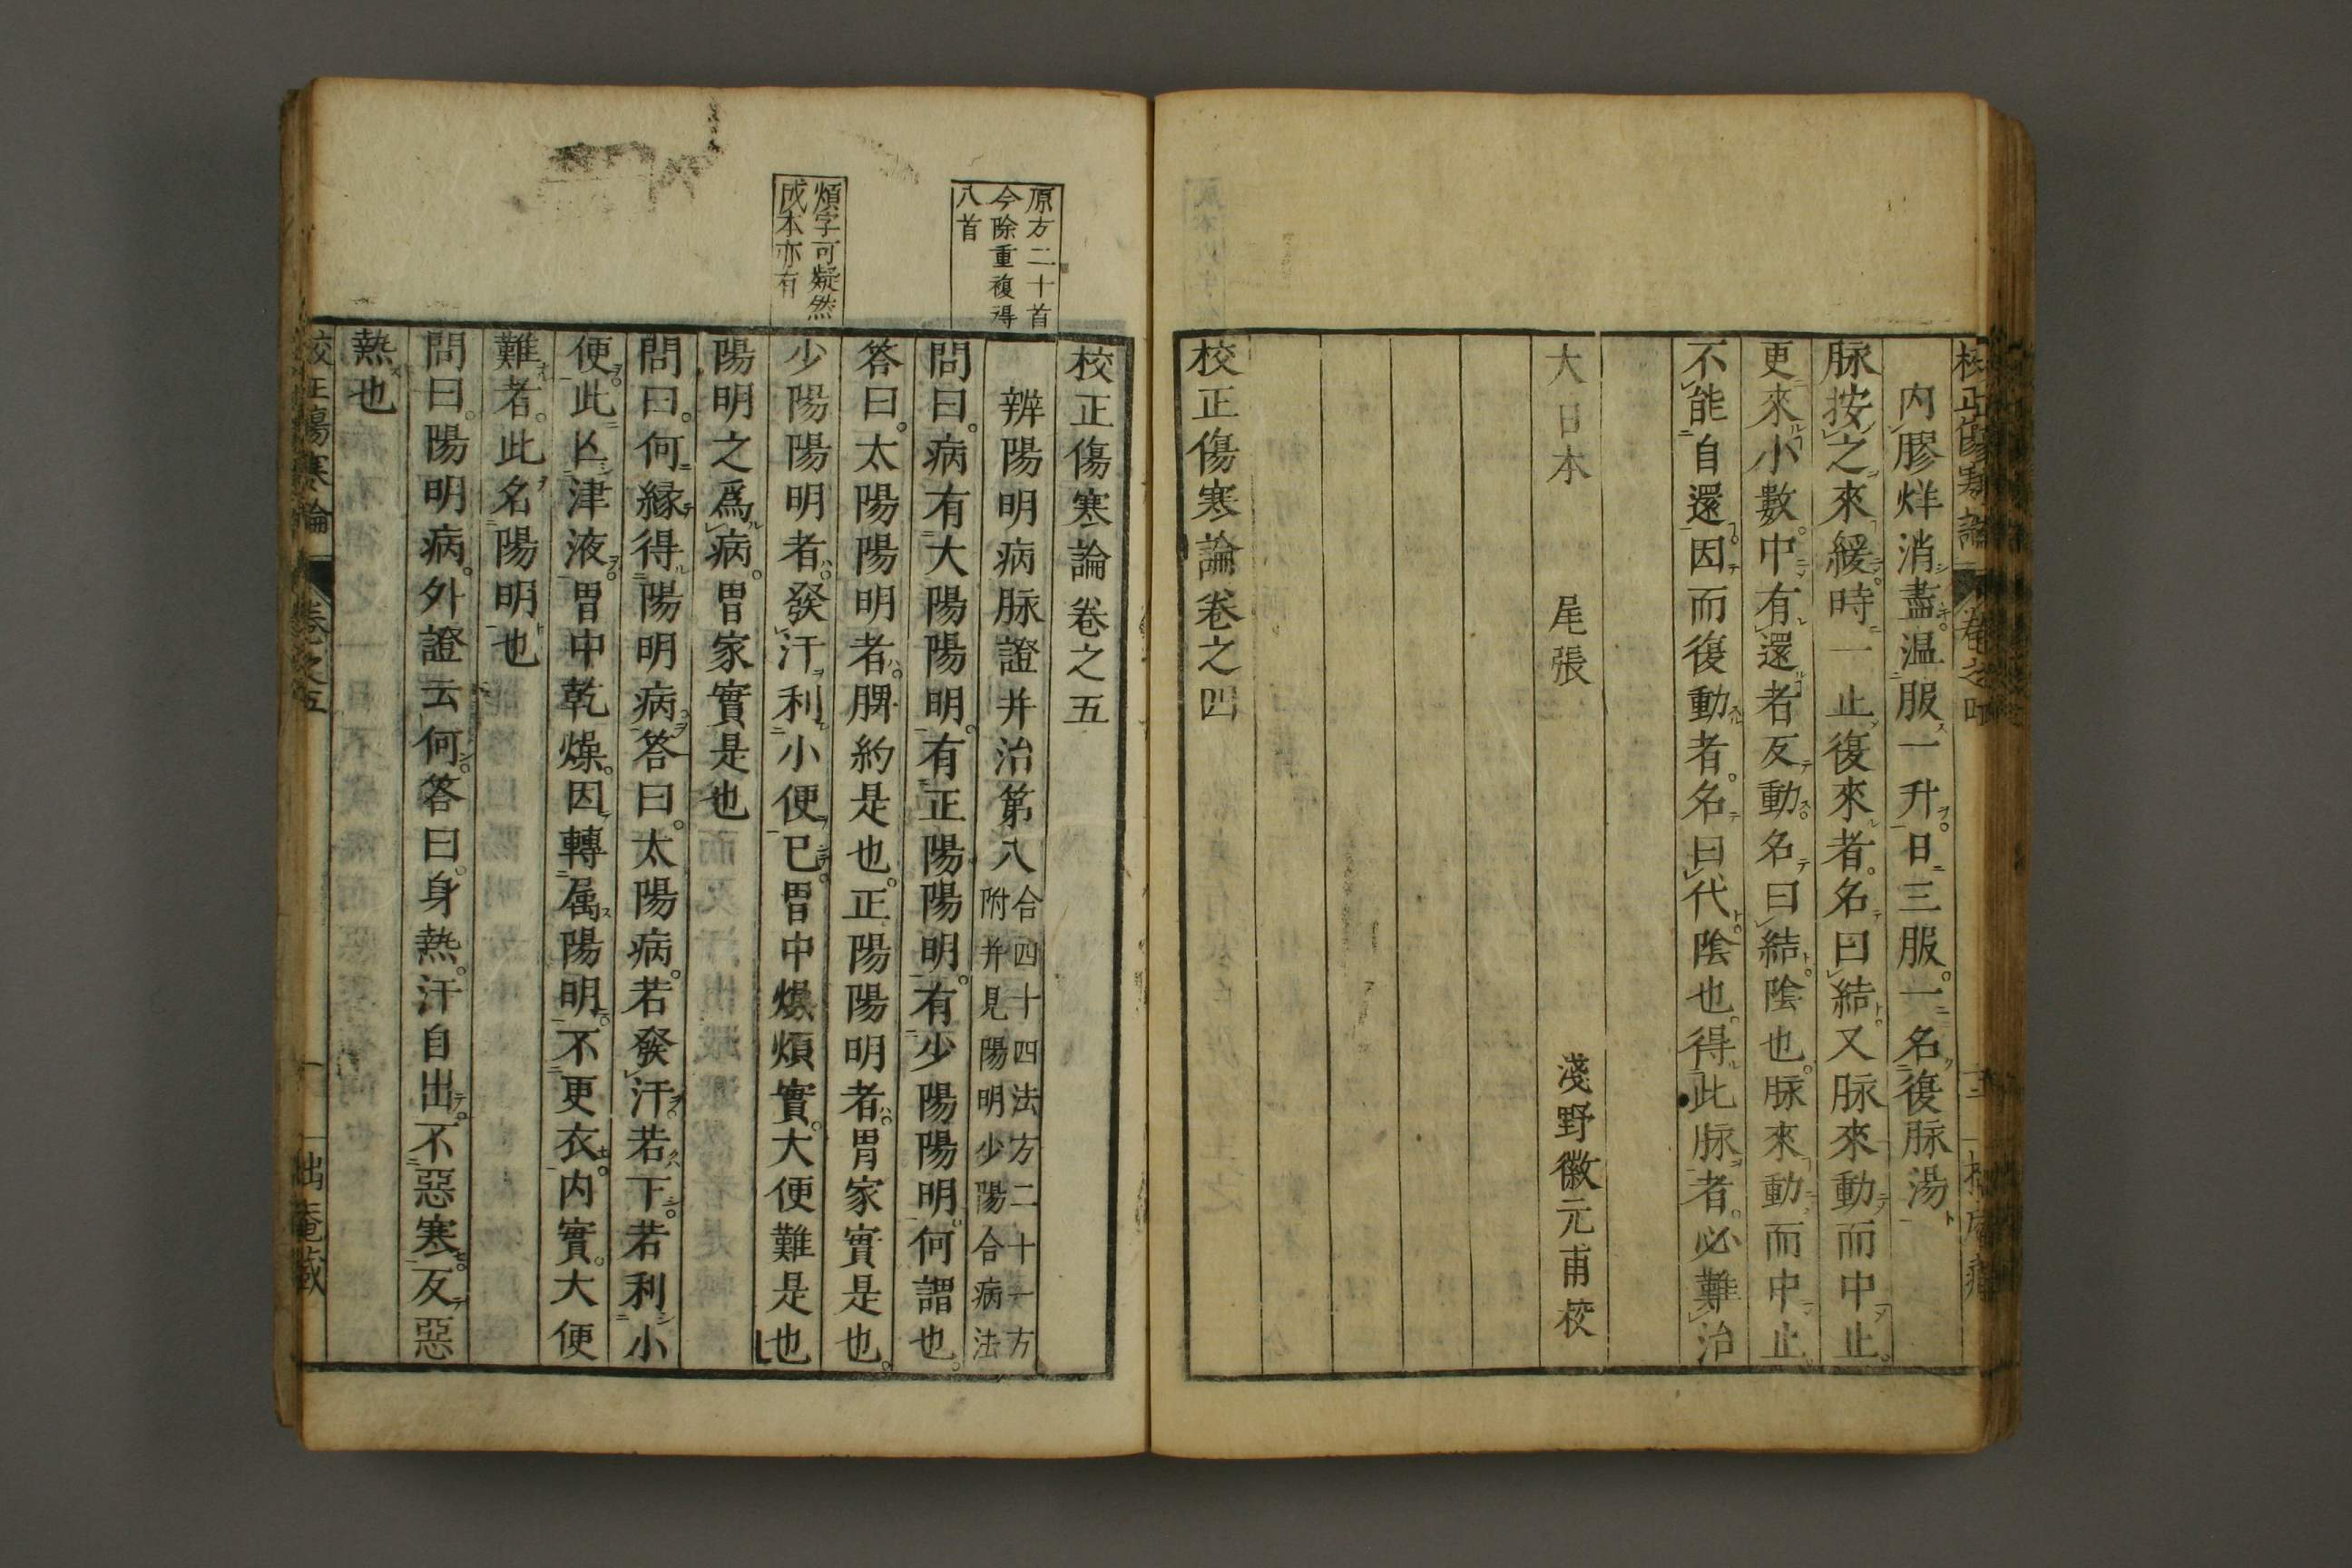 内膠烊消盡温服一升日三服一名復脉湯
脉按之來緩時一止復來者名曰結又脉來動而中止
更來小數中有還者反動名曰結陰也脉來動而中止
不能自還因而復動者名曰代陰也得此脉者必難治
大日本 尾張 淺野徽元甫校
校正傷寒論卷之四
原方二十首
今除重複得
八首
煩字可疑然
成本亦有
校正傷寒論卷之五
辨陽明病脉證并治第八 合四十四法方二十一方 附并見陽明少陽合病法
問曰病有太陽陽明有正陽陽明有少陽陽明何謂也
答曰太陽陽明者脾約是也正陽陽明者胃家實是也
少陽陽明者發汗利小便已胃中燥煩實大便難是也
陽明之爲病胃家實是也
問曰何縁得陽明病答曰太陽病若發汗若下若利小
便此亡津液胃中乾燥因轉属陽明不更衣内實大便
難者此名陽明也
問曰陽明病外證云何答曰身熱汗自出不惡寒反惡
熱也
校正傷寒論 卷之五 一